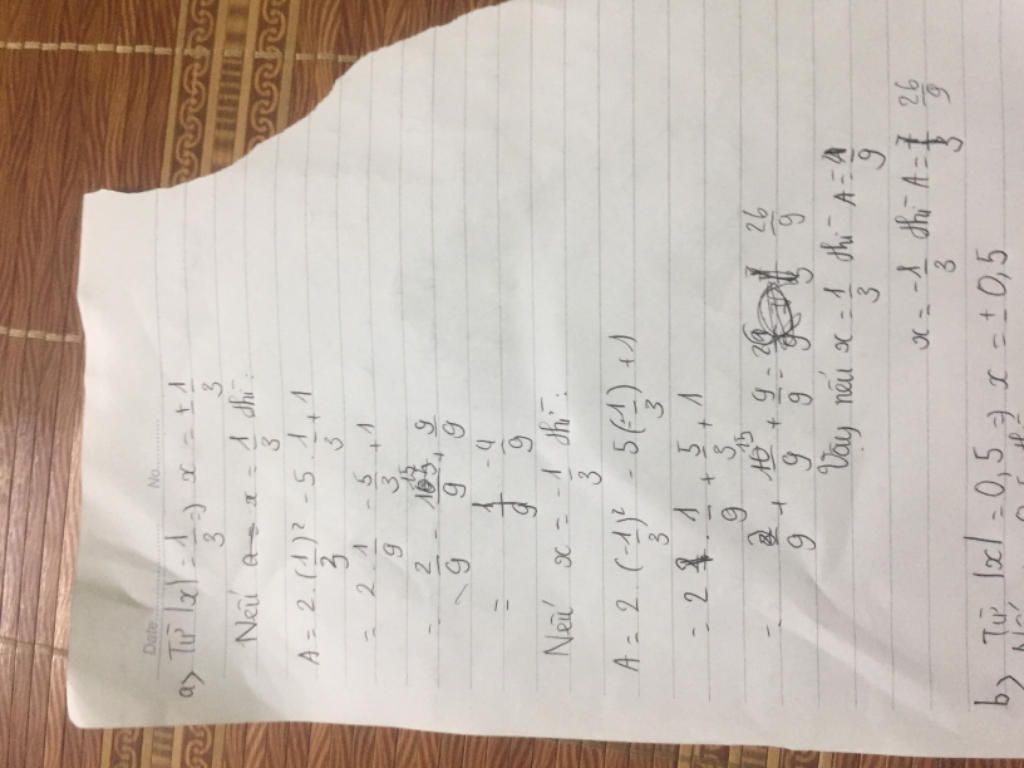 Date.............. No..........
a> Từ |x| = 1/3 => x = ± 1/3
Nếu x = 1/3 thì:
A = 2.(1/3)² - 5.1/3 + 1
= 2.1/9 - 5/3 + 1
= 2/9 - 15/9 + 9/9
= -4/9
Nếu x = -1/3 thì:
A = 2.(-1/3)² - 5(-1/3) + 1
= 2.1/9 + 5/3 + 1
= 2/9 + 15/9 + 9/9 = 26/9
Vậy nếu x = 1/3 thì A = -4/9
x = -1/3 thì A = 26/9
b> Từ |x| = 0,5 => x = ± 0,5